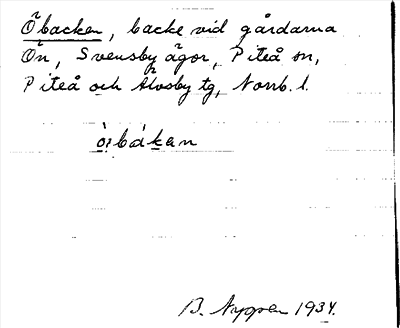 Öbacken, backe vid gårdarna
Ön, Svensby ägor, Piteå sn,
Piteå och Älvsby tg, Norrb. l.
B. Nygren 1934.